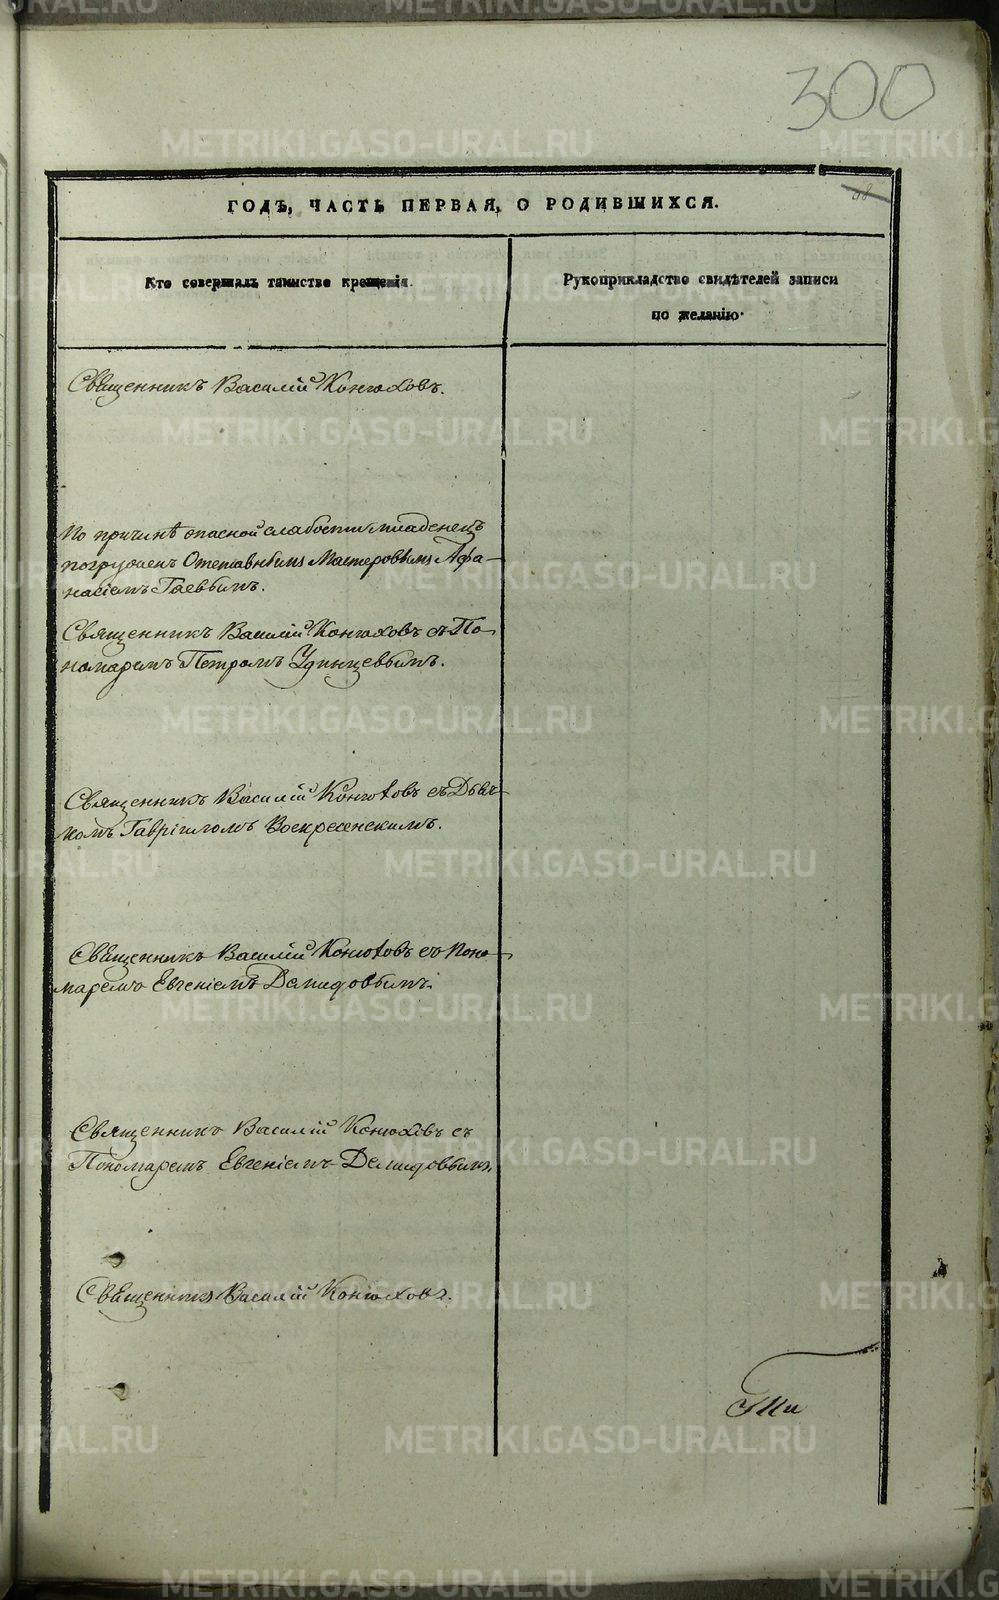 300
98
ГОДЪ, ЧАСТЬ ПЕРВАЯ, О РОДИВШИХСЯ.
Кто совершалъ таинство крещенія.
Рукоприкладство свидѣтелей записи
по желанію.
Священникъ Василій Конюховъ.
По причинѣ опасной слабости младенецъ
погруженъ Отставнымъ Мастеровымъ Афа-
насіемъ Гаевымъ.
Священникъ Василій Конюховъ съ По-
номаремъ Петромъ Удинцевымъ.
Священникъ Василій Конюховъ съ Дьяч-
комъ Гавріиломъ Воскресенскимъ.
Священникъ Василій Конюховъ съ Поно-
маремъ Евгеніемъ Демидовымъ.
Священникъ Василій Конюховъ съ
Пономаремъ Евгеніемъ Демидовымъ.
Священникъ Василій Конюховъ.
METRIKI.GASO-URAL.RU